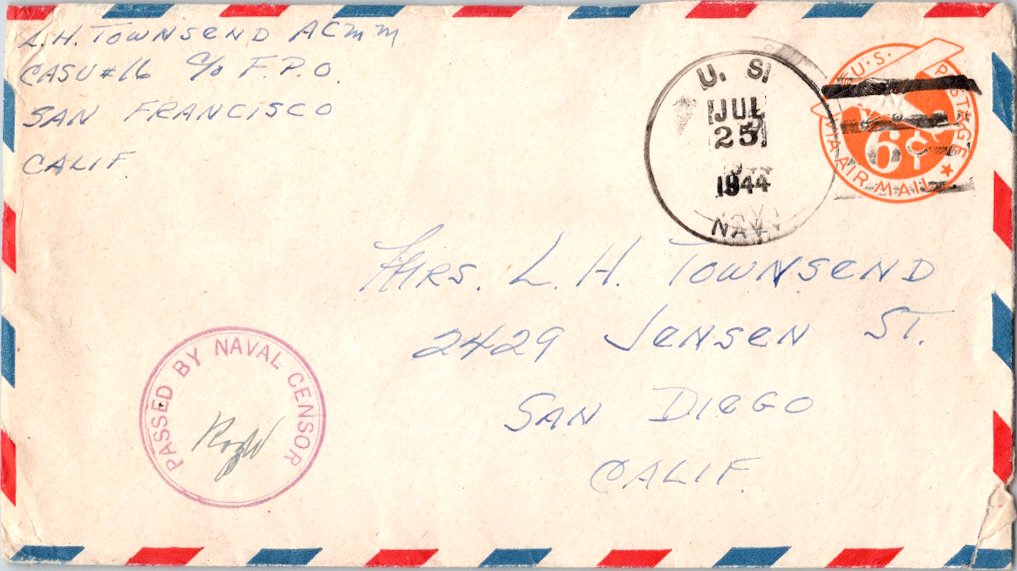 L. H. TOWNSEND ACMM
CASU #16 c/o F.P.O.
SAN FRANCISCO
CALIF.
U. S.
JUL
25
1944
NAVY
U.S. POSTAGE
6¢
VIA AIR MAIL
MRS. L. H. TOWNSEND
2429 JENSEN ST.
SAN DIEGO
CALIF.
PASSED BY NAVAL CENSOR